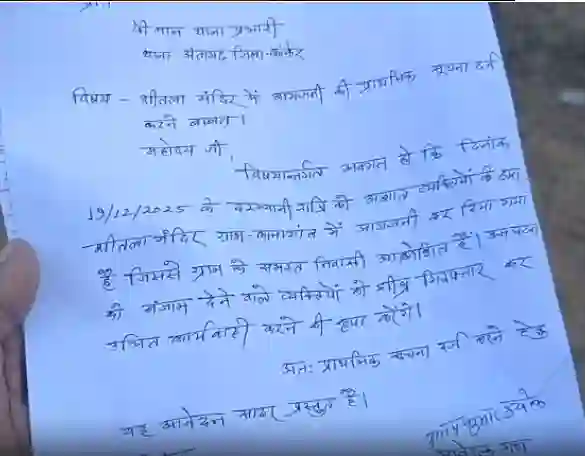 प्रति,
श्री मान थाना प्रभारी
थाना अंतागढ़ जिला-कांकेर
विषय - शीतला मंदिर में आगजनी की प्राथमिक सूचना दर्ज
करने बाबत।
महोदय जी,
विषयान्तर्गत अवगत हो कि दिनांक
19/12/2025 के दरम्यानी रात्रि को अज्ञात व्यक्तियों के द्वारा
शीतला मंदिर ग्राम- में आगजनी कर दिया गया
है जिससे ग्राम के समस्त निवासी आक्रोशित है। उक्त घटना
को अंजाम देने वाले व्यक्तियों को शीघ्र गिरफ्तार कर
उचित कार्यवाही करने की कृपा करेंगे।
अतः प्राथमिक सूचना दर्ज करने हेतु
यह आवेदन सादर प्रस्तुत है।